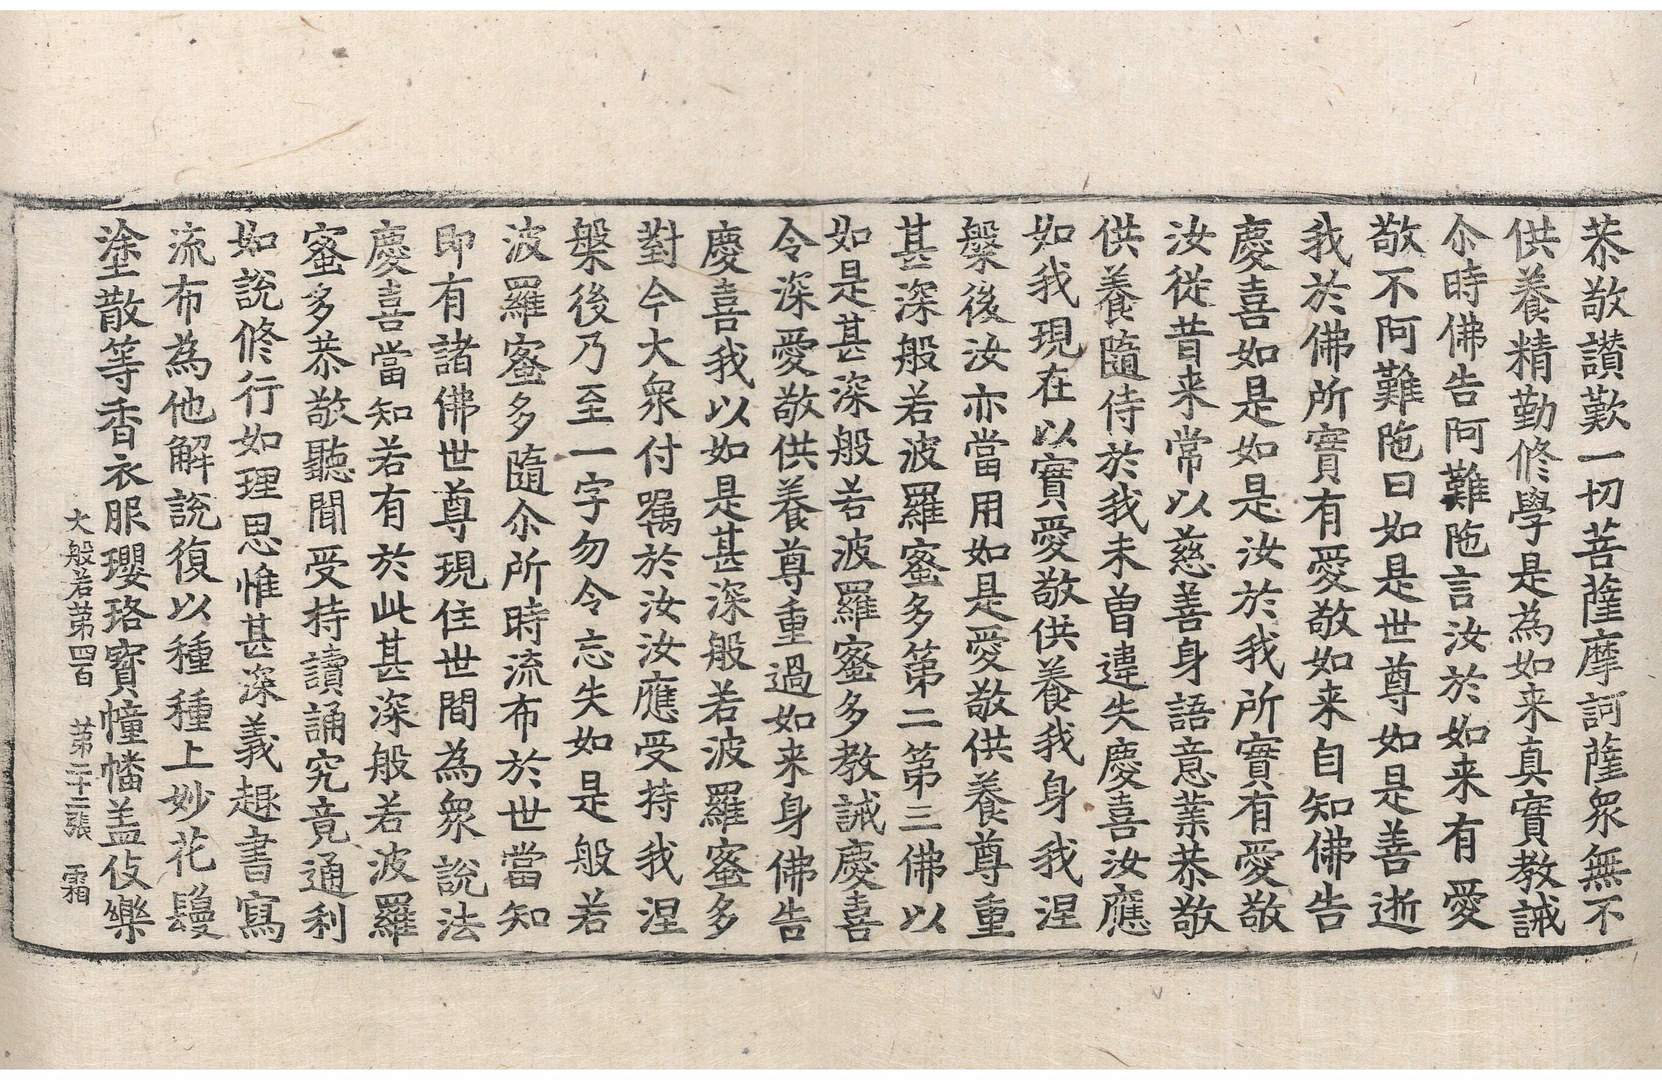 恭敬讃歎一切菩薩摩訶薩衆無不
供養精勤修學是為如来真實教誡
尒時佛告阿難陁言汝於如来有愛
敬不阿難陁曰如是世尊如是善逝
我於佛所實有愛敬如来自知佛告
慶喜如是如是汝於我所實有愛敬
汝從昔来常以慈善身語意業恭敬
供養隨侍於我未曾違失慶喜汝應
如我現在以實愛敬供養我身我涅
槃後汝亦當用如是愛敬供養尊重
甚深般若波羅蜜多第二第三佛以
如是甚深般若波羅蜜多教誡慶喜
令深愛敬供養尊重過如来身佛告
慶喜我以如是甚深般若波羅蜜多
對今大衆付囑於汝汝應受持我涅
槃後乃至一字勿令忘失如是般若
波羅蜜多隨尒所時流布於世當知
即有諸佛世尊現住世間為衆說法
慶喜當知若有於此甚深般若波羅
蜜多恭敬聽聞受持讀誦究竟通利
如說修行如理思惟甚深義趣書寫
流布為他解說復以種種上妙花鬘
塗散等香衣服瓔珞寶幢幡盖伎樂
大般若第四百 第二十二張 霜